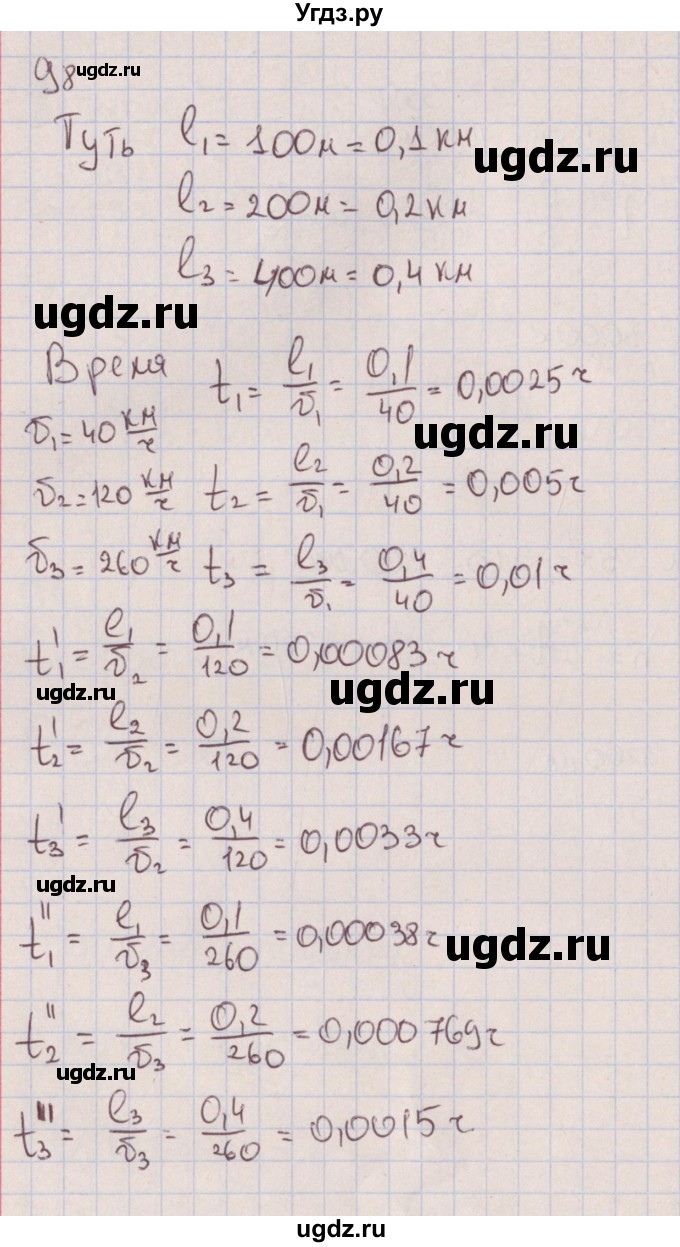 Угдз.ру
98
ugdz.ru
Путь l₁ = 100м = 0,1 км
ugdz.ru
l₂ = 200м = 0,2 км
l₃ = 400м = 0,4 км
ugdz.ru
Время t₁ = l₁/v₁ = 0,1/40 = 0,0025 ч
v₁ = 40 км/ч
ugdz.ru
v₂ = 120 км/ч t₂ = l₂/v₁ = 0,2/40 = 0,005 ч
v₃ = 260 км/ч t₃ = l₃/v₁ = 0,4/40 = 0,01 ч
t₁' = l₁/v₂ = 0,1/120 = 0,00083 ч
ugdz.ru
ugdz.ru
t₂' = l₂/v₂ = 0,2/120 = 0,00167 ч
t₃' = l₃/v₂ = 0,4/120 = 0,0033 ч
ugdz.ru
t₁'' = l₁/v₃ = 0,1/260 = 0,00038 ч
ugdz.ru
t₂'' = l₂/v₃ = 0,2/260 = 0,000769 ч
ugdz.ru
t₃''' = l₃/v₃ = 0,4/260 = 0,0015 ч
ugdz.ru